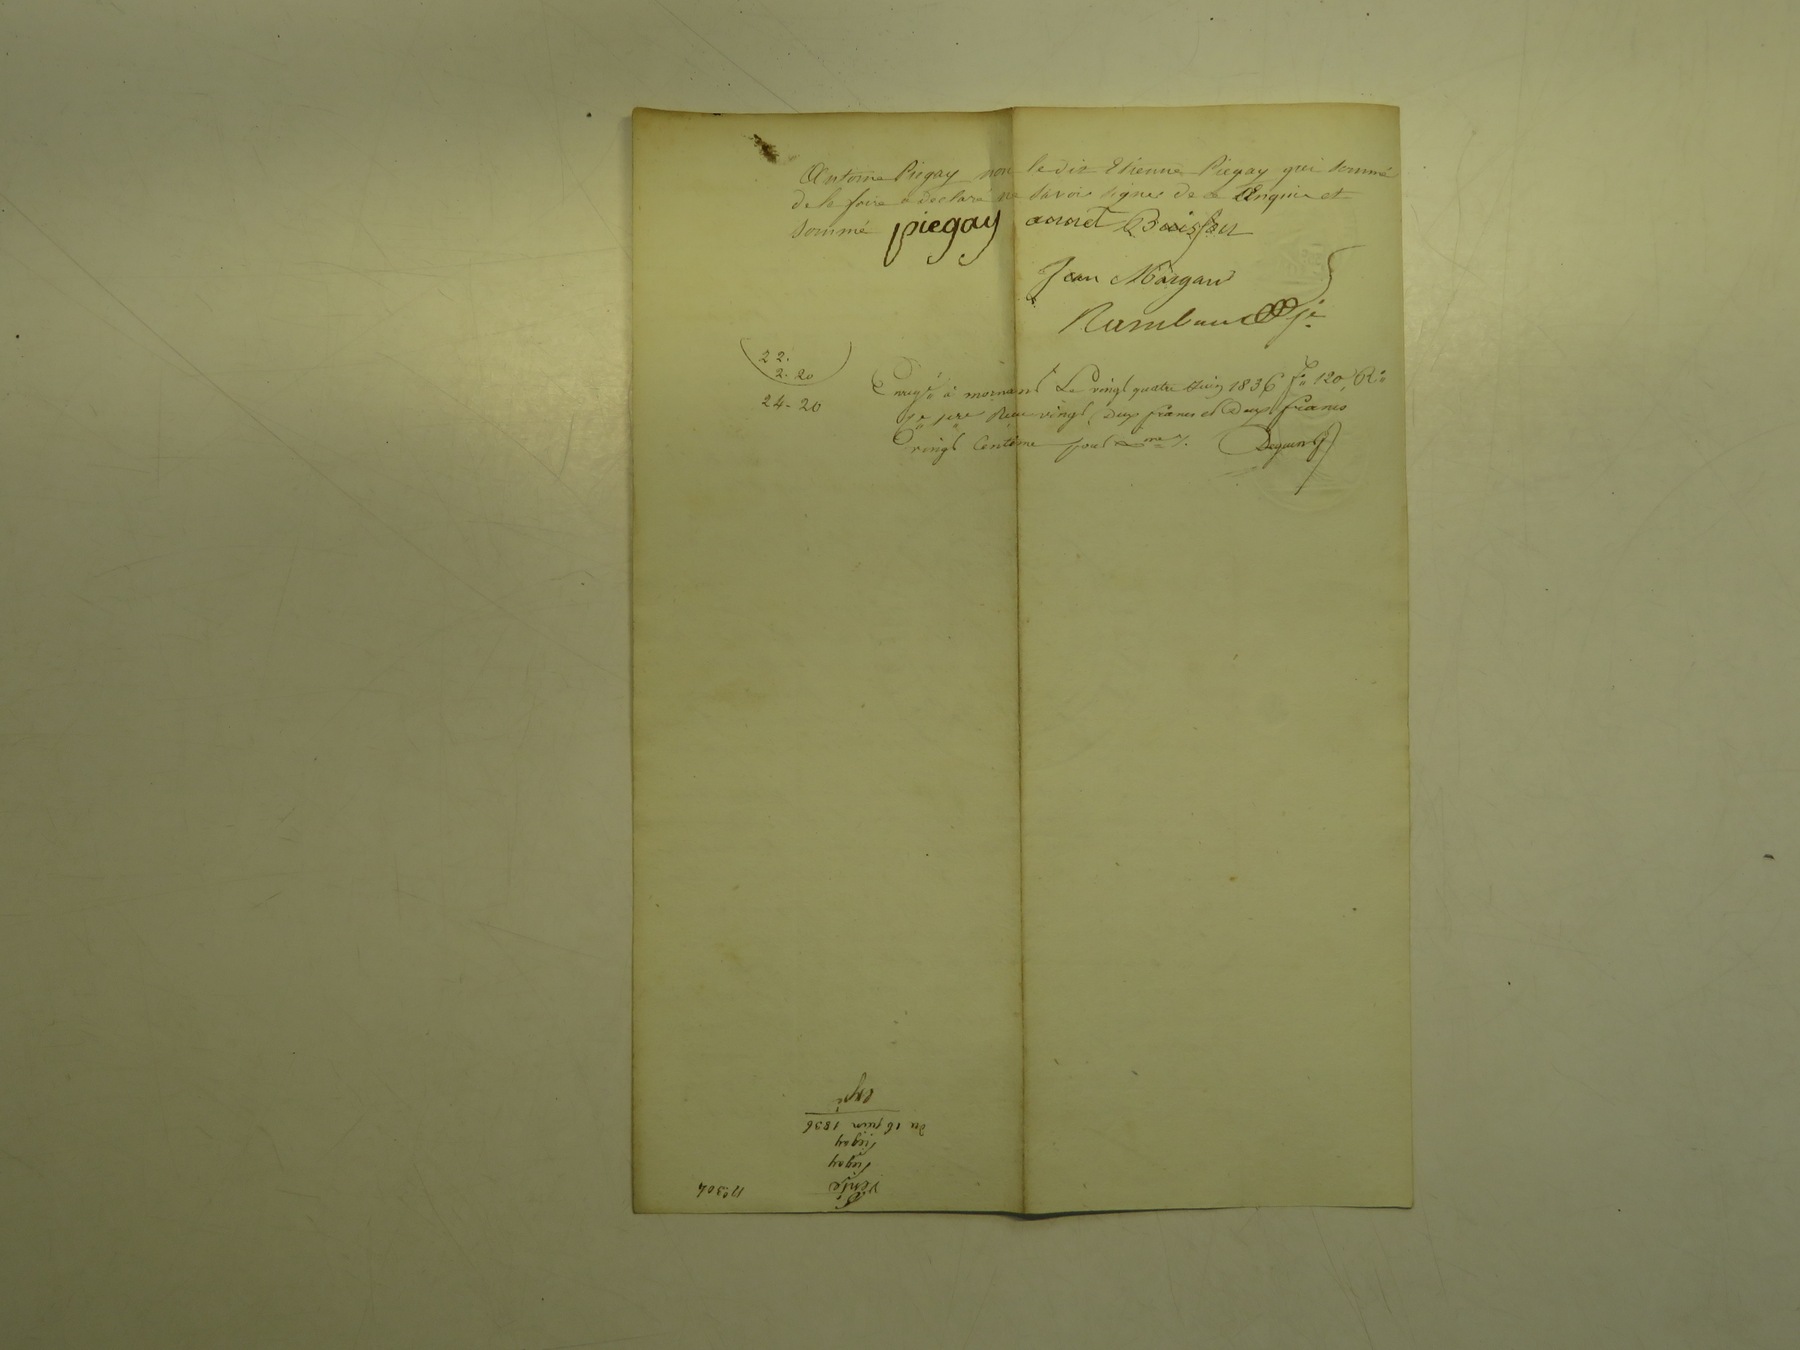 Antoine Piégay non le dit Etienne Piegay qui sommé
de le faire a déclaré ne savoir signer de ce Enquis et
sommé piegay Buisson
Jean Margard
Rambaud
22.
2. 20
24-20
Enregé à mornant Le vingt quatre Juin 1836 fo 120 Ro
Reçu vingt Deux francs et Deux francs
vingt Centime pour
Vente
Piegay
Piegay
du 16 juin 1836
expé
No 304